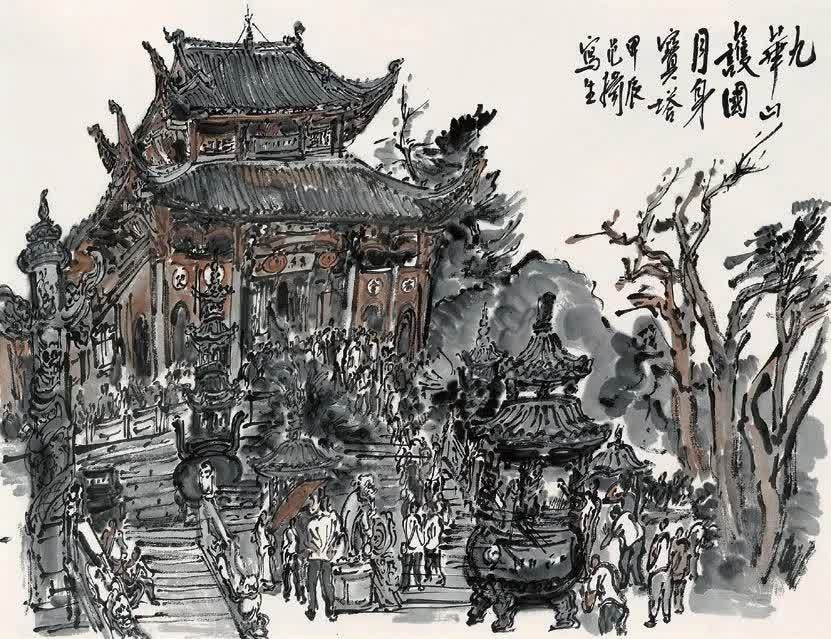 九
華山
護國
月身
寶塔
甲辰
邑
寫生